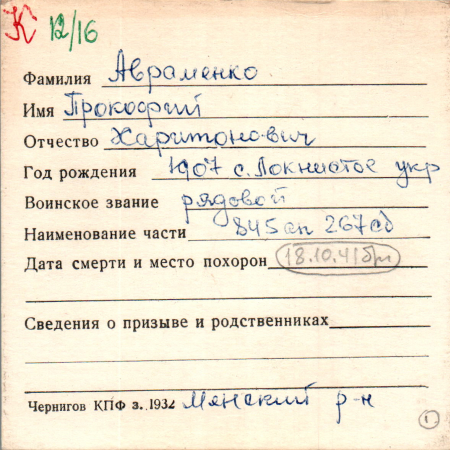 К 12/16
Фамилия Авраменко
Имя Прокофий
Отчество Харитонович
Год рождения 1907 с. Локнистое укр
Воинское звание рядовой
Наименование части 845 сп 267 сд
Дата смерти и место похорон 18.10.41
Сведения о призыве и родственниках
Чернигов КПФ з. 1932 Менский р-н
1